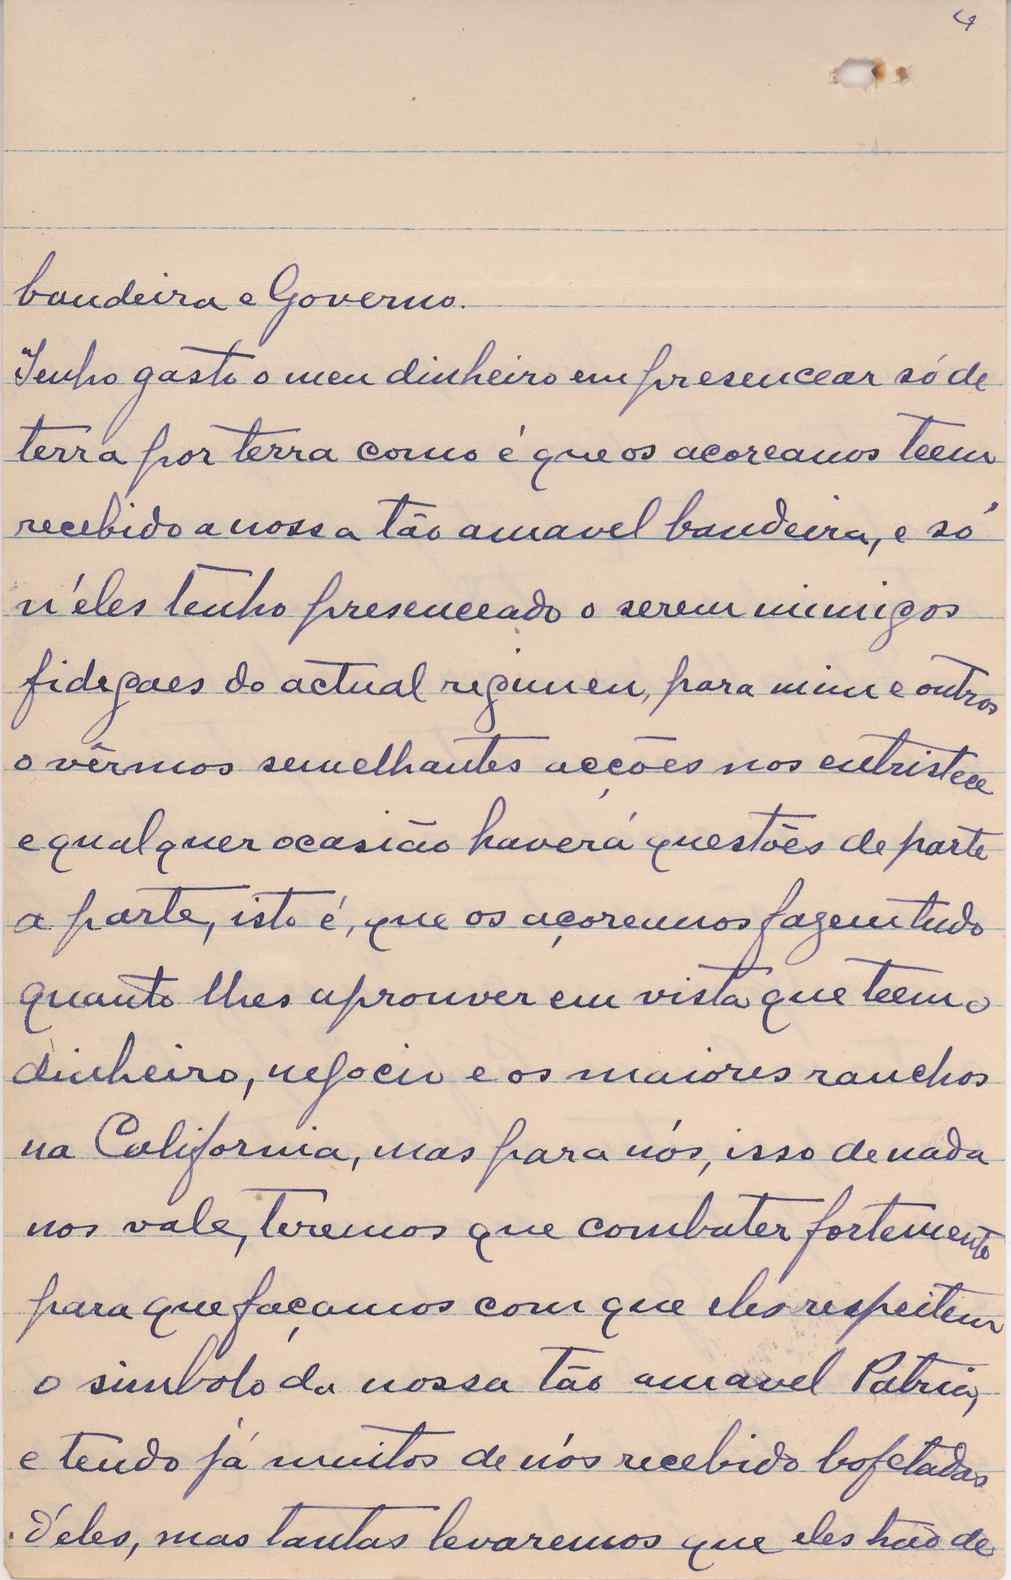 4
bandeira e Governo.
Tenho gasto o meu dinheiro em presencear só de
terra por terra como é que os acoreanos teem
recebido a nossa tão amavel bandeira, e só
n'éles tenho presenceado o serem inimigos
fidegaes do actual regimen, para mim e outros
o vêrmos semelhantes acções nos entristece
e qualquer ocasião haverá questões de parte
a parte, isto é, que os açoreanos fazem tudo
quanto lhes aprouver em vista que teem o
dinheiro, negocio e os maiores ranchos
na California, mas para nós, isso de nada
nos vale, teremos que combater fortemente
para que façamos com que eles respeitem
o simbolo da nossa tão amavel Patria,
e tendo já muitos de nós recebido bofetadas
d'eles, mas tantas levaremos que eles hão de